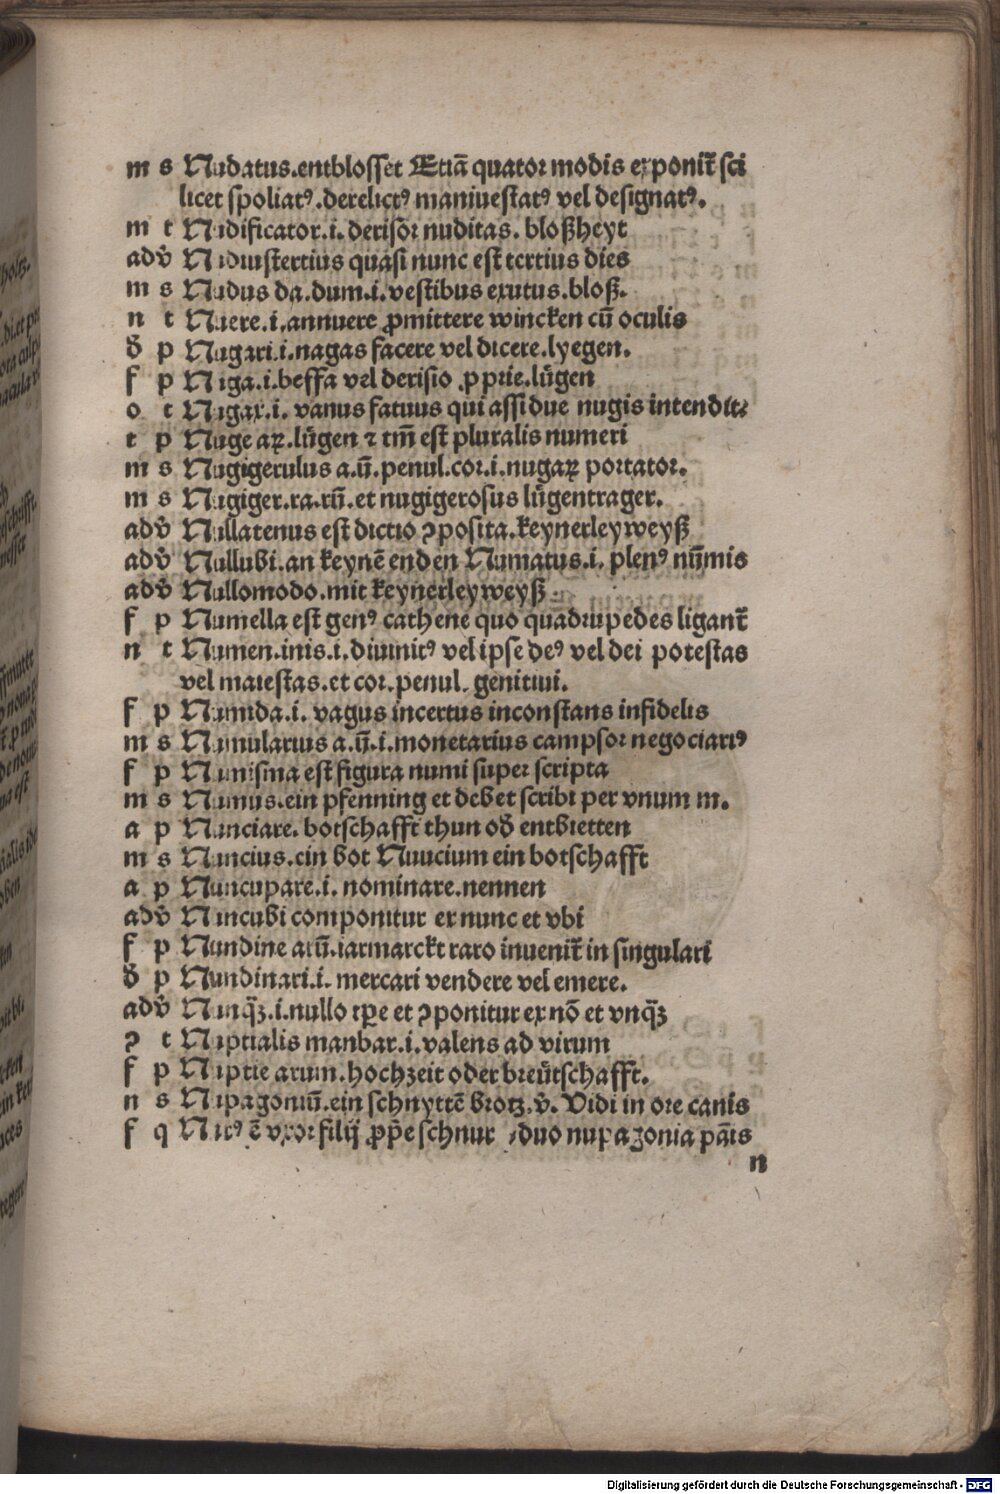 m s Nudatus.entblosset Etiā quatuor modis exponit᷑ sci
licet spoliatꝰ.derelictꝰ maniuestatꝰ vel designatꝰ.
m t Nudificator.i.derisor nuditas. bloßheyt
adv̄ Nudiustertius quasi nunc est tertius dies
m s Nudus da.dum.i.vestibus exutus.bloß.
n t Nuere.i.annuere ꝓmittere wincken cū oculis
đ p Nugari.i.nagas facere vel dicere.lyegen.
f p Nuga.i.beffa vel derisio ꝓprie.lügen
o t Nugax.i. vanus fatuus qui assidue nugis intendit
t p Nuge aꝝ.lügen ⁊ tm̄ est pluralis numeri
m s Nugigerulus a.ū.penul.cor.i.nugaꝝ portator.
m s Nugiger.ra.rū.et nugigerosus lügentrager.
adv̄ Nullatenus est dictio ꝯposita.keynerley weyß
adv̄ Nullubi.an keynē enden Numatus.i. plenꝰ nūmis
adv̄ Nullomodo.mit keynerley weyß
f p Numella est genꝰ cathene quo quadrupedes ligant᷑
n t Numen.inis.i.diuinitꝰ vel ipse deꝰ vel dei potestas
vel maiestas.et cor.penul. genitiui.
f p Numida.i. vagus incertus inconstans infidelis
m s Numularius a.ū.i.monetarius campsor negociariꝰ
f p Numisma est figura numi super scripta
m s Numus.ein pfenning et debet scribi per vnum m.
a p Nunciare. botschafft thun ođ entbietten
m s Nuncius.ein bot Nuucium ein botschafft
a p Nuncupare.i. nominare.nennen
adv̄ Nuncubi componitur ex nunc et vbi
f p Nundine arū.iarmarckt raro inuenit᷑ in singulari
đ p Nundinari.i. mercari vendere vel emere.
adv̄ Nunq̄ꝫ.i.nullo tꝑe et ꝯponitur ex nō et vnq̄ꝫ
ꝯ t Nuptialis manbar.i.valens ad virum
f p Nuptie arum.hochzeit oder breütschafft.
n s Nupagoniū.ein schnyttē brotz.v̄. Vidi in ore canis
f q Nurꝰ ē vxor filij ꝓp̄e schnur duo nupagonia pāis
n
Digitalisierung gefördert durch die Deutsche Forschungsgemeinschaft - DFG